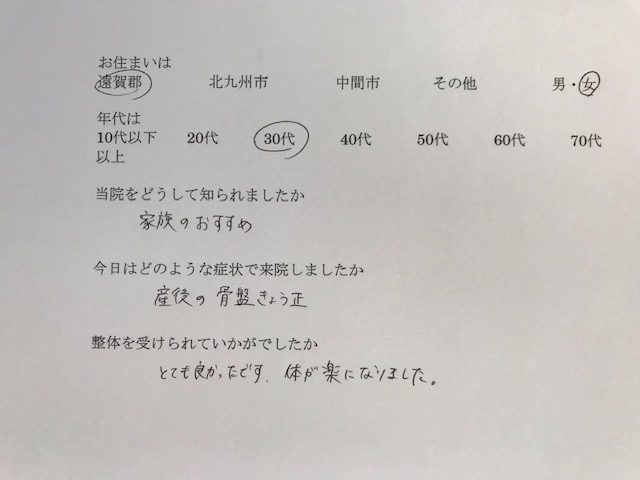 お住まいは
遠賀郡 北九州市 中間市 その他 男・女
年代は
10代以下 20代 30代 40代 50代 60代 70代
以上
当院をどうして知られましたか
家族のおすすめ
今日はどのような症状で来院しましたか
産後の骨盤きょう正
整体を受けられていかがでしたか
とても良かったです. 体が楽になりました。